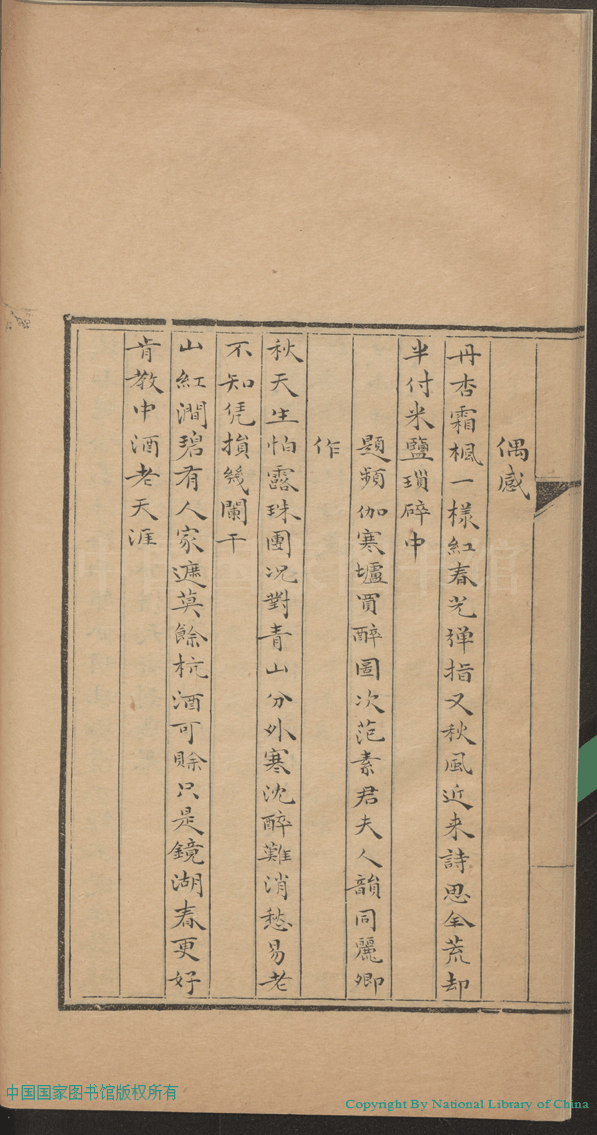 偶感
丹杏霜楓一樣紅春光彈指又秋風近来詩思全荒却
半付米鹽瑣碎中
題頻伽寒壚買醉圖次范素君夫人韻同麗卿
作
秋天生怕露珠團况對青山分外寒沈醉難消愁易老
不知凭損幾闌干
山紅澗碧有人家遮莫餘杭酒可賒只是鏡湖春更好
肯教中酒老天涯
中国国家图书馆版权所有
Copyright By National Library of China